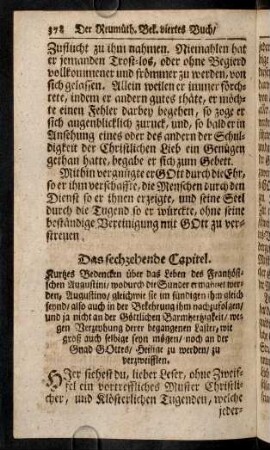 378 Der Reumüth. Bek. viertes Buch/
Zuflucht zu ihm nahmen. Niemahlen hat
er jemanden Trost-los, oder ohne Begierd
vollkommener und frömmer zu werden, von
sich gelassen. Allein weilen er immer förch-
tete, indem er andern gutes thäte, er möch-
te einen Fehler darbey begehen, so zoge er
sich augenblicklich zuruck, und, so bald er in
Ansehung eines oder des andern der Schul-
digkeit der Christlichen Lieb ein Genügen
gethan hatte, begabe er sich zum Gebett.
Mithin vergnügte er GOtt durch die Ehr,
so er ihm verschaffte, die Menschen durch den
Dienst so er ihnen erzeigte, und seine Seel
durch die Tugend so er würckte, ohne seine
beständige Vereinigung mit GOtt zu ver-
streuen.
Das sechzehende Capitel.
Kurtzes Bedencken über das Leben des Frantzösi-
schen Augustini/ wodurch die Sünder ermahnet wer-
den, Augustino/ gleichwie sie im sündigen ihm gleich
seynd/ also auch in der Bekehrung ihm nachzufolgen/
und ja nicht an der Göttlichen Barmhertzigkeit/ we-
gen Verzeyhung derer begangenen Laster, wie
groß auch selbige seyn mögen/ noch an der
Gnad GOttes/ Heilige zu werden/ zu
verzweifflen.
HIer siehest du, lieber Leser, ohne Zweif-
fel ein vortreffliches Muster Christli-
cher, und Klösterlichen Tugenden, welche
jeder-